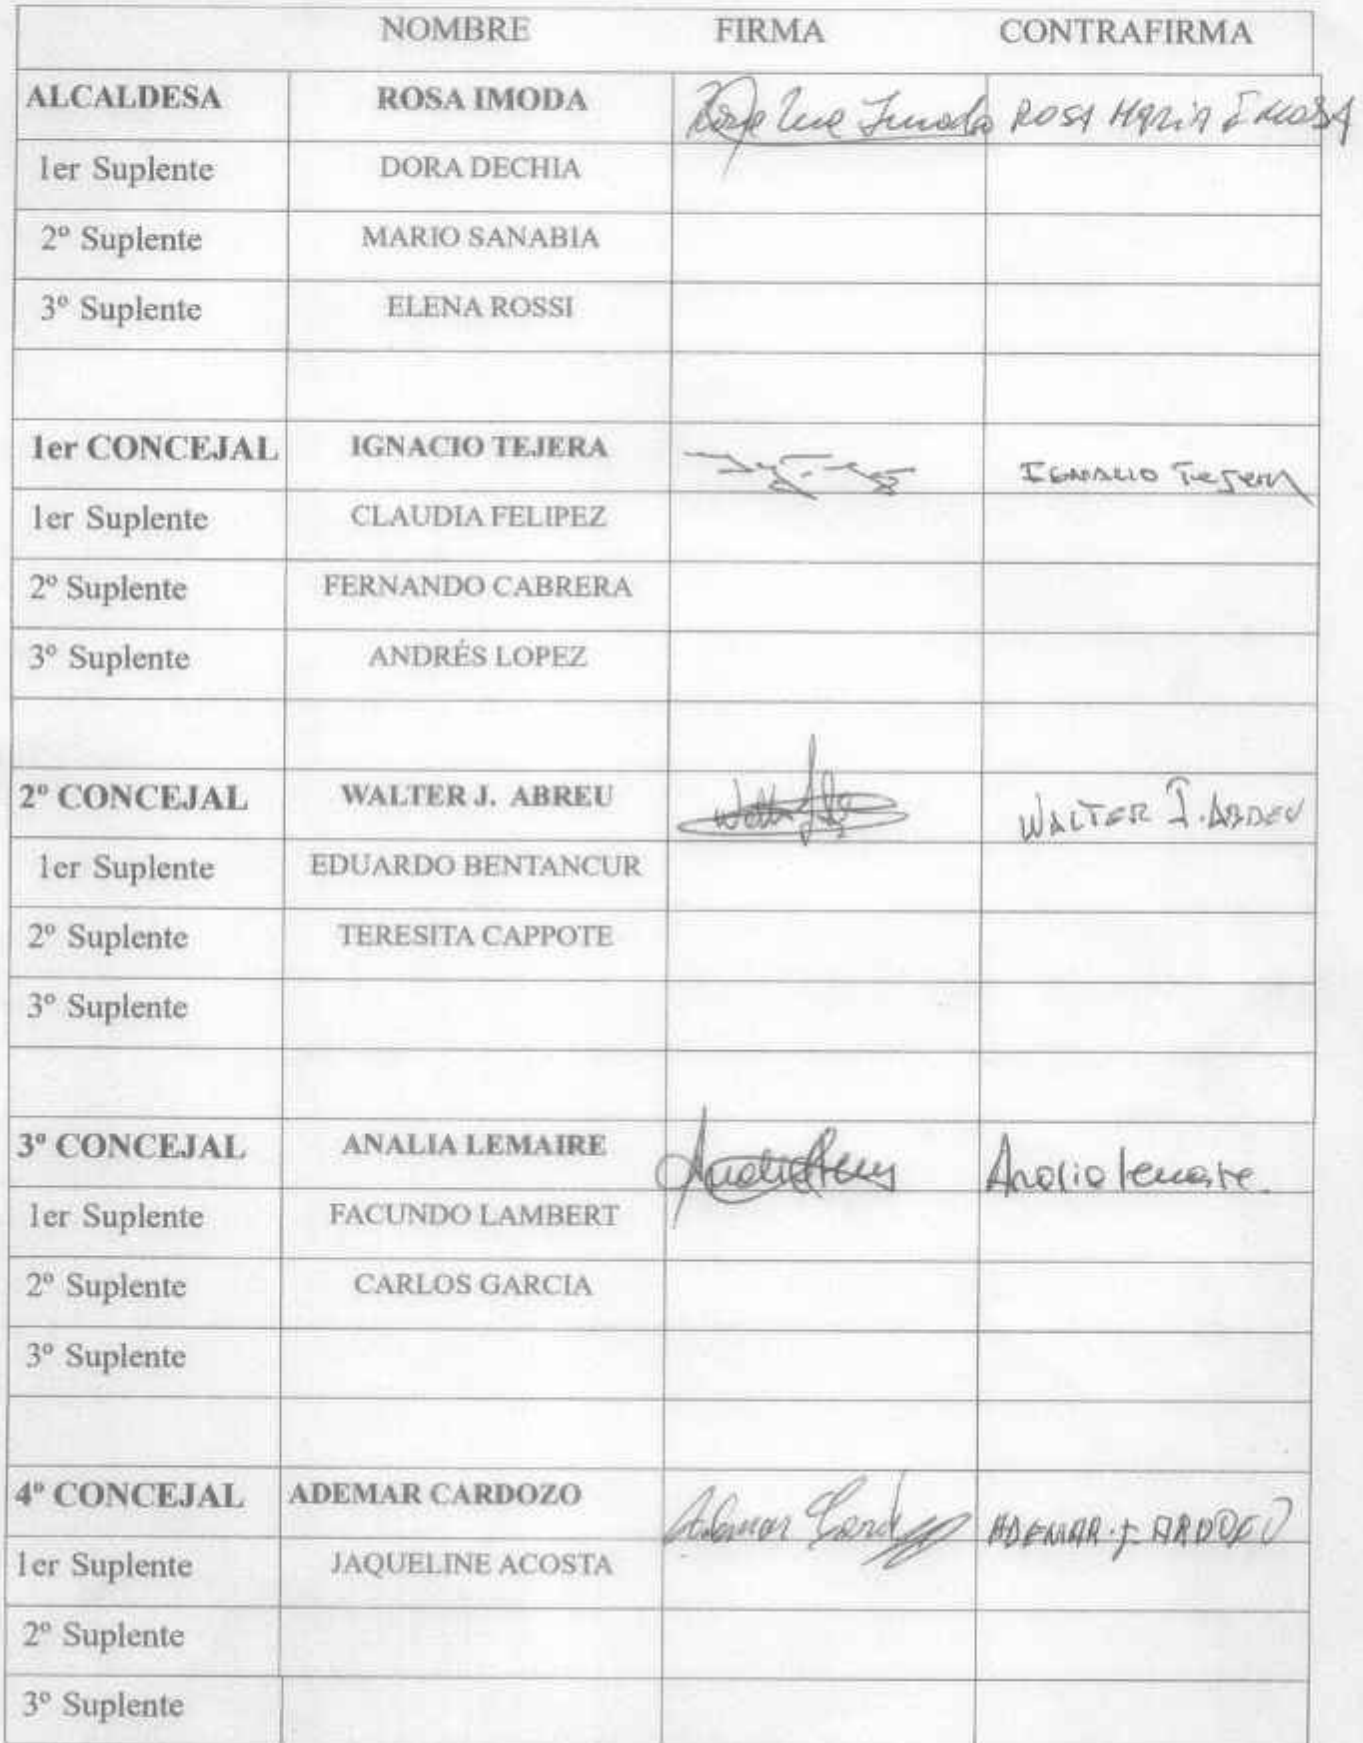 NOMBRE FIRMA CONTRAFIRMA
ALCALDESA ROSA IMODA ROSA MARIA IMODA
1er Suplente DORA DECHIA
2º Suplente MARIO SANABIA
3º Suplente ELENA ROSSI
1er CONCEJAL IGNACIO TEJERA IGNACIO TEJERA
1er Suplente CLAUDIA FELIPEZ
2º Suplente FERNANDO CABRERA
3º Suplente ANDRÉS LOPEZ
2º CONCEJAL WALTER J. ABREU WALTER J. ABREU
1er Suplente EDUARDO BENTANCUR
2º Suplente TERESITA CAPPOTE
3º Suplente
3º CONCEJAL ANALIA LEMAIRE Analia Lemaire
1er Suplente FACUNDO LAMBERT
2º Suplente CARLOS GARCIA
3º Suplente
4º CONCEJAL ADEMAR CARDOZO Ademar ADEMAR
1er Suplente JAQUELINE ACOSTA
2º Suplente
3º Suplente